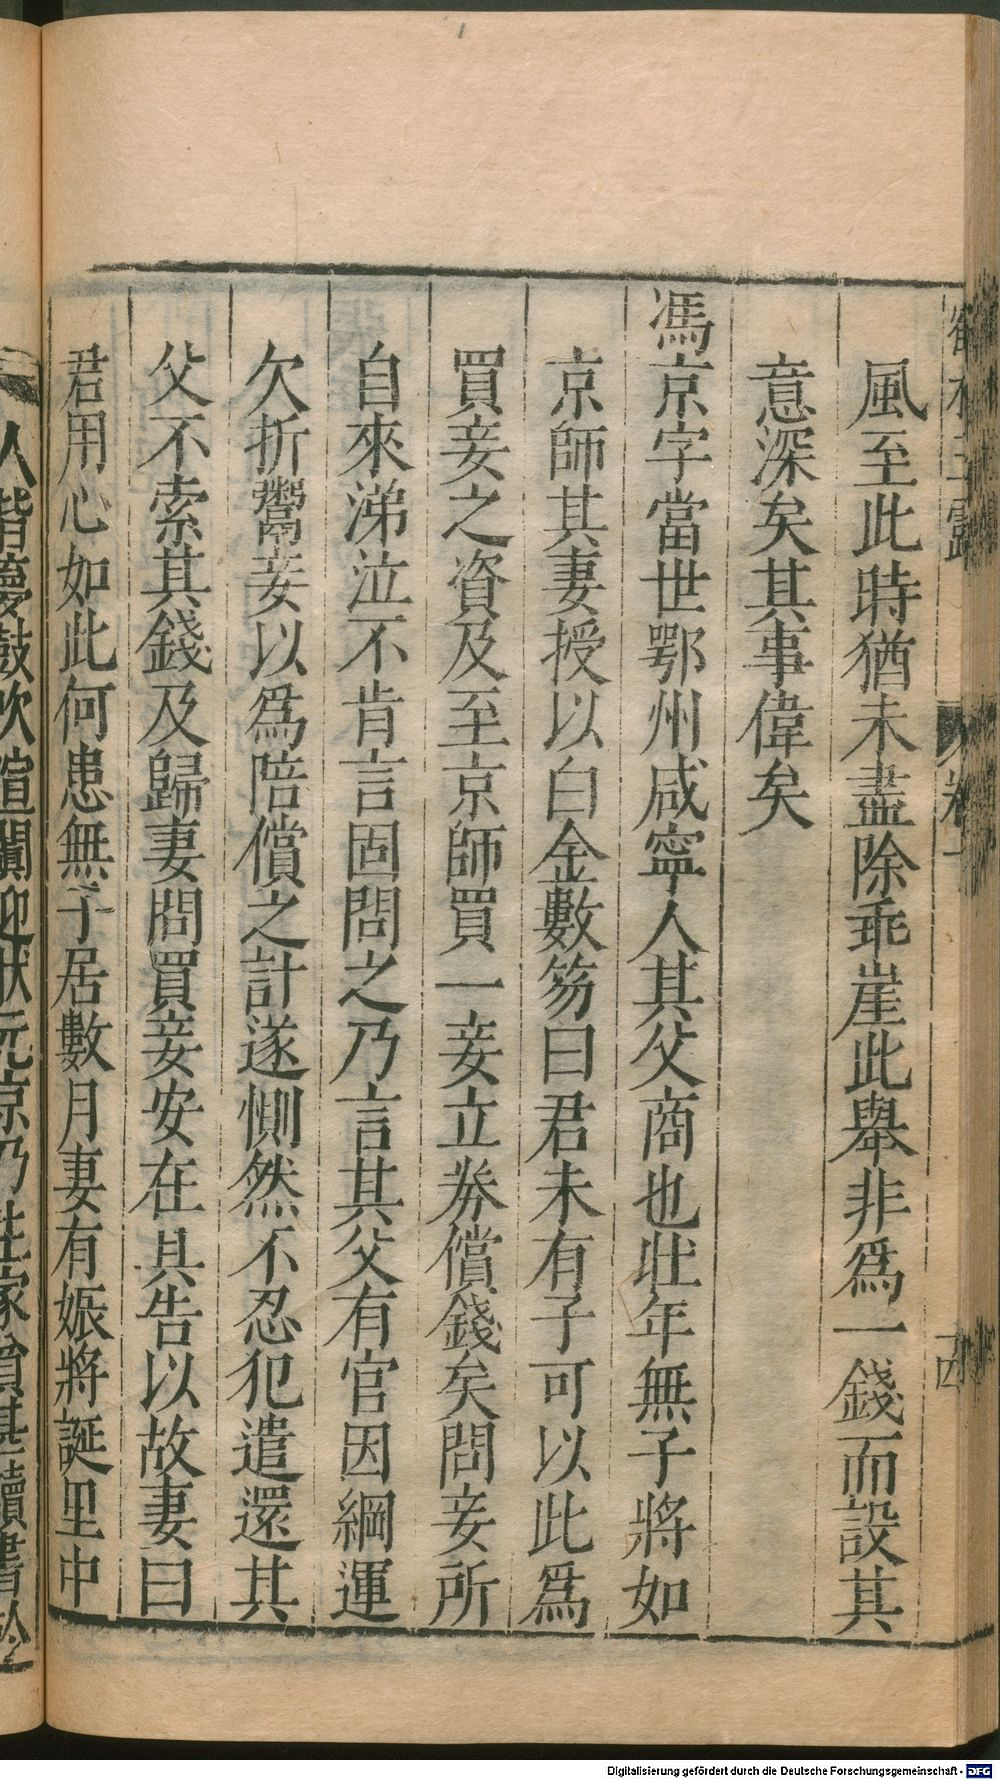 風至此時猶未盡除乖崖此舉非爲一錢而設其
意深矣其事偉矣
馮京字當世鄂州咸寧人其父商也壯年無子將如
京師其妻授以白金數笏曰君未有子可以此爲
買妾之資及至京師買一妾立券償錢矣問妾所
自來涕泣不肯言固問之乃言其父有官因綱運
欠折鬻妾以爲陪償之計遂惻然不忍犯遣還其
父不索其錢及歸妻問買妾安在具告以故妻曰
君用心如此何患無子居數月妻有娠將誕里中
人皆夢鼓吹喧闐迎狀元京乃生家貧甚讀書於
Digitalisierung gefördert durch die Deutsche Forschungsgemeinschaft - DFG